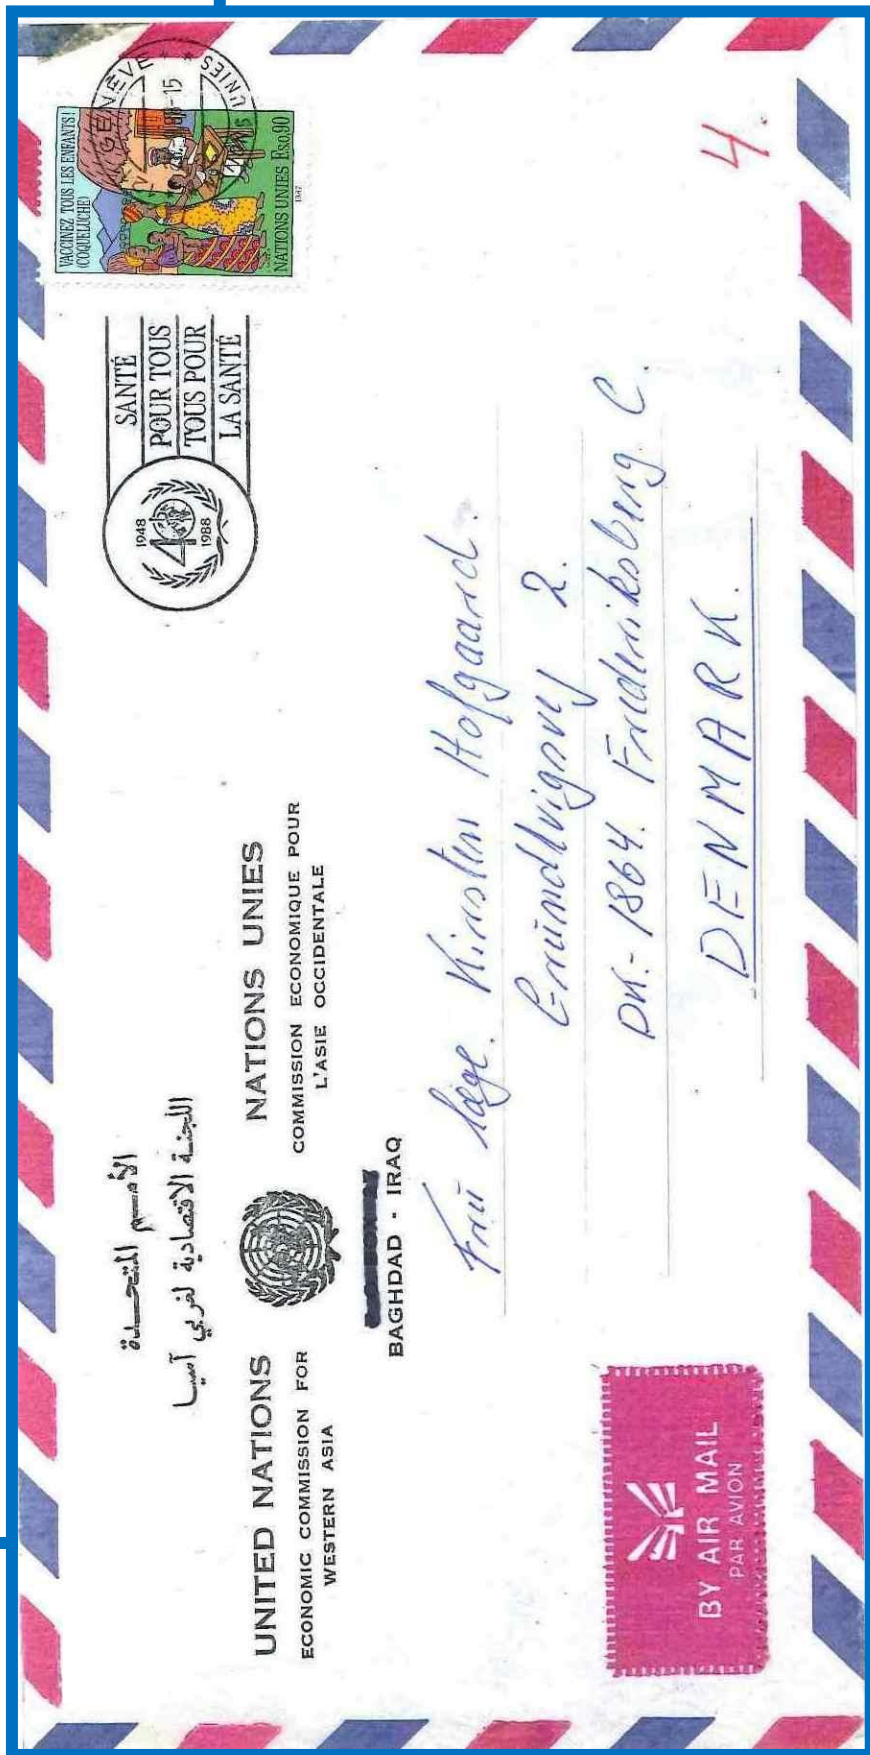 الأمم المتحدة
اللجنة الاقتصادية لغربي آسيا
UNITED NATIONS
ECONOMIC COMMISSION FOR
WESTERN ASIA
NATIONS UNIES
COMMISSION ECONOMIQUE POUR
L'ASIE OCCIDENTALE
BAGHDAD - IRAQ
1948
40
1988
SANTÉ
POUR TOUS
TOUS POUR
LA SANTÉ
GENÈVE
UNIES
VACCINEZ TOUS LES ENFANTS!
(COQUELUCHE)
NATIONS UNIES F.s.0,90
1987
4.
Fru læge. Kirsten Hofgaard.
Grundtvigsvej 2.
DK.- 1864. Frederiksberg C.
DENMARK.
BY AIR MAIL
PAR AVION